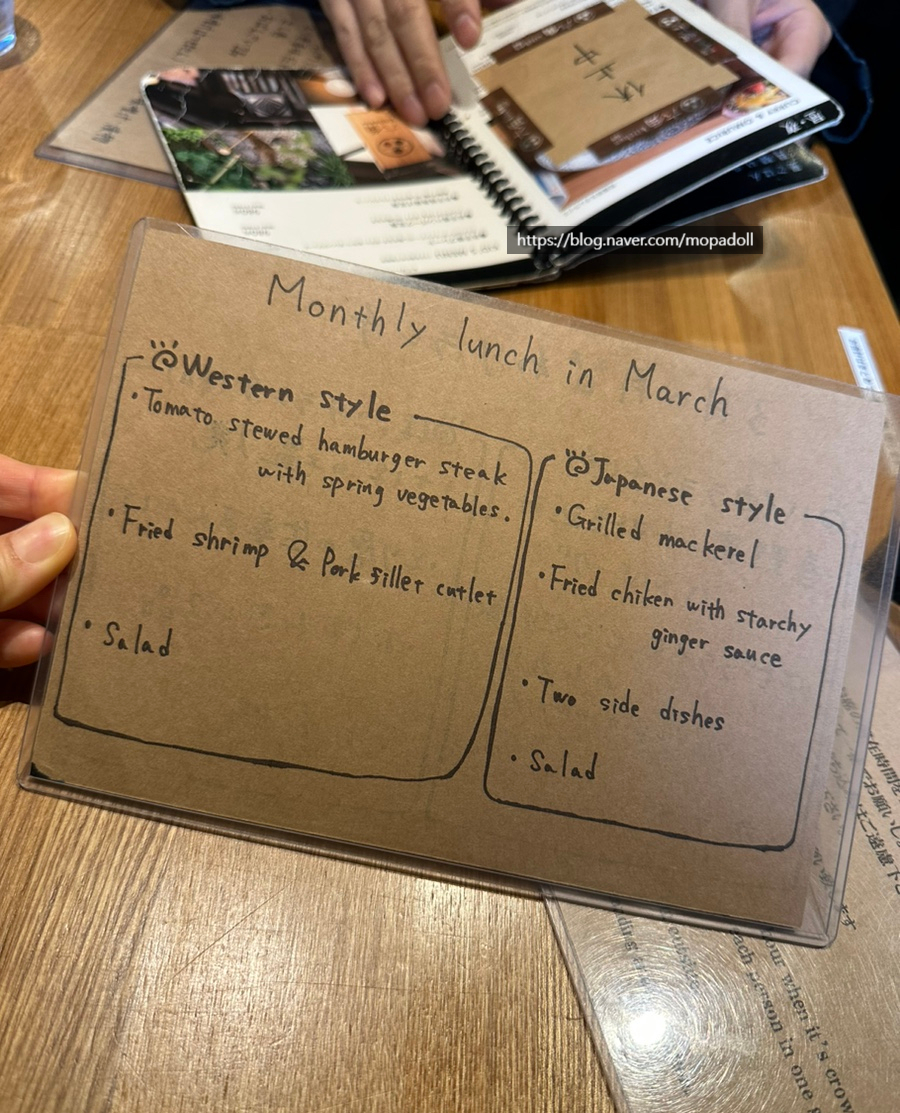 https://blog.naver.com/mopadoll
CURRY & OMURICE
Monthly lunch in March
Western style
・Tomato stewed hamburger steak
with spring vegetables.
・Fried shrimp & Pork fillet cutlet
・Salad
Japanese style
・Grilled mackerel
・Fried chiken with starchy
ginger sauce
・Two side dishes
・Salad
ます
our when it's crow
each person in one